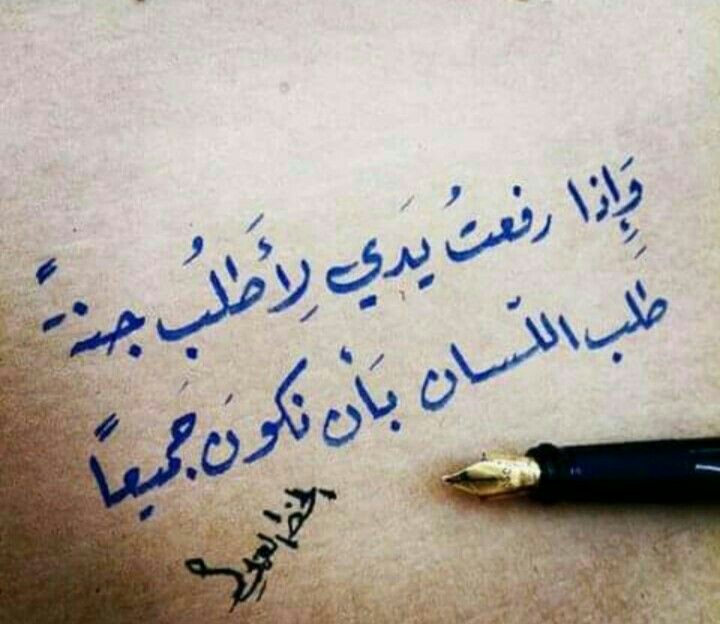 وَإِذا رفعتُ يَدَي لِأَطلُب جنةً
طَلب اللّسان بَأن نكونَ جَميعاً